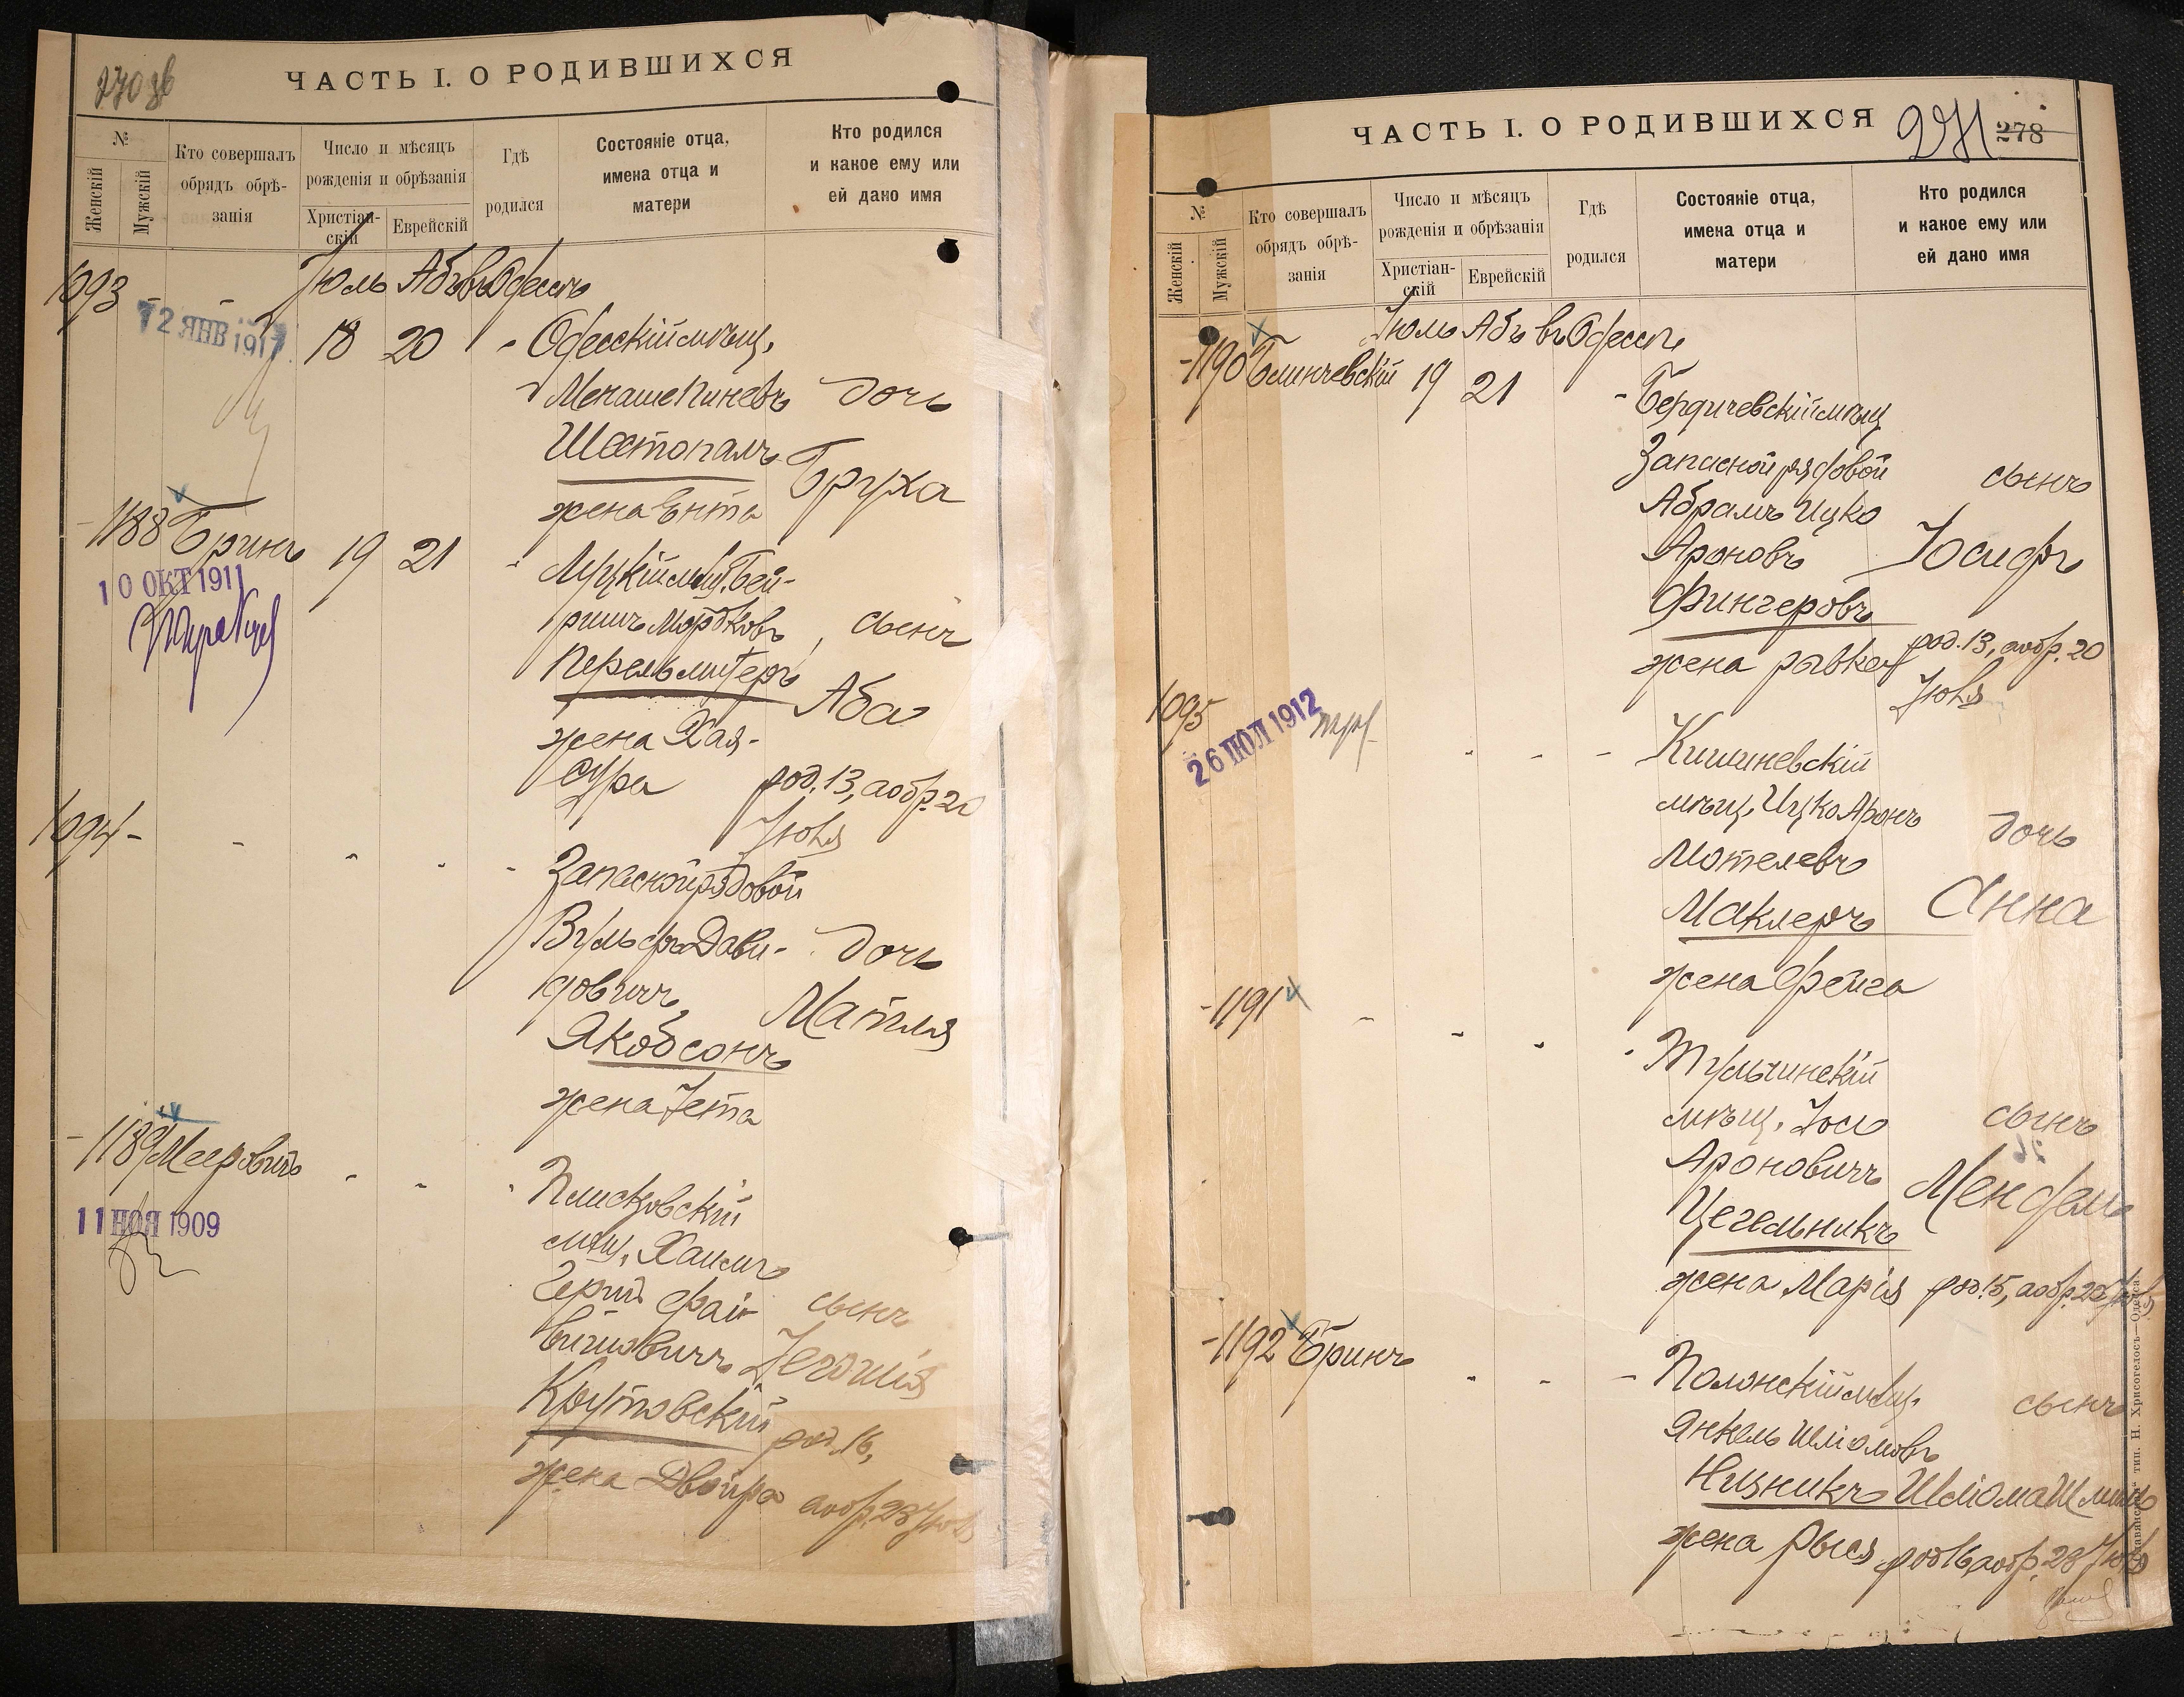 270 об
ЧАСТЬ I. О РОДИВШИХСЯ
№
Женскій
Мужскій
Кто совершалъ
обрядъ обрѣ-
занія
Число и мѣсяцъ
рожденія и обрѣзанія
Христіан-
скій
Еврейскій
Гдѣ
родился
Состояніе отца,
имена отца и
матери
Кто родился
и какое ему или
ей дано имя
Іюль Абъ въ Одессѣ
1093 - - 18 20 - Одесскій мѣщ.
12 ЯНВ 1917
Менаше Пиневъ дочь
Шестопалъ Бруха
жена Ента
-1188 Бринъ 19 21 - Луцкій мѣщ. Бей-
10 ОКТ 1911
ришъ Мордковъ сынъ
Перельмутеръ Аба
жена Хая-
Сура род. 13, а обр. 20
Іюля
1094 - - - - - Запасной рядовой
Вульфъ Дави- дочь
довичъ Матля
Якобсонъ
жена Іета
-1189 Мееровичъ - - - Плисковскій
11 НОЯ 1909
мѣщ. Хаимъ
Герш Фай- сынъ
вишовичъ Іегошія
Крутовскій род. 16,
жена Двойра а обр. 23 Іюля
ЧАСТЬ I. О РОДИВШИХСЯ
271 278
№
Женскій
Мужскій
Кто совершалъ
обрядъ обрѣ-
занія
Число и мѣсяцъ
рожденія и обрѣзанія
Христіан-
скій
Еврейскій
Гдѣ
родился
Состояніе отца,
имена отца и
матери
Кто родился
и какое ему или
ей дано имя
Іюль Абъ въ Одессѣ
-1190 Блинчевскій 19 21 - Бердичевскій мѣщ
Запасной рядовой сынъ
Абрамъ Ицко
Ароновъ Іосифъ
Фингеровъ
жена Ривка род. 13, а обр. 20
Іюля
1095 - - - Кишиневскій
26 ІЮЛ 1912
мѣщ. Ицко Аронъ дочь
Мотелевъ
Маклеръ Анна
жена Фейга
-1191 - - - - Тульчинскій
мѣщ. Іось сынъ
Ароновичъ Мендель
Цегельникъ
жена Марія род. 15, а обр. 22 Іюля
-1192 Бринъ - - - Полонскій мѣщ. сынъ
Янкель Шліомовъ
Низникъ Шліома Шмилъ
жена Рыся род 16 а обр. 23 Іюля
тип. Н. Хрисогелосъ—Одесса.